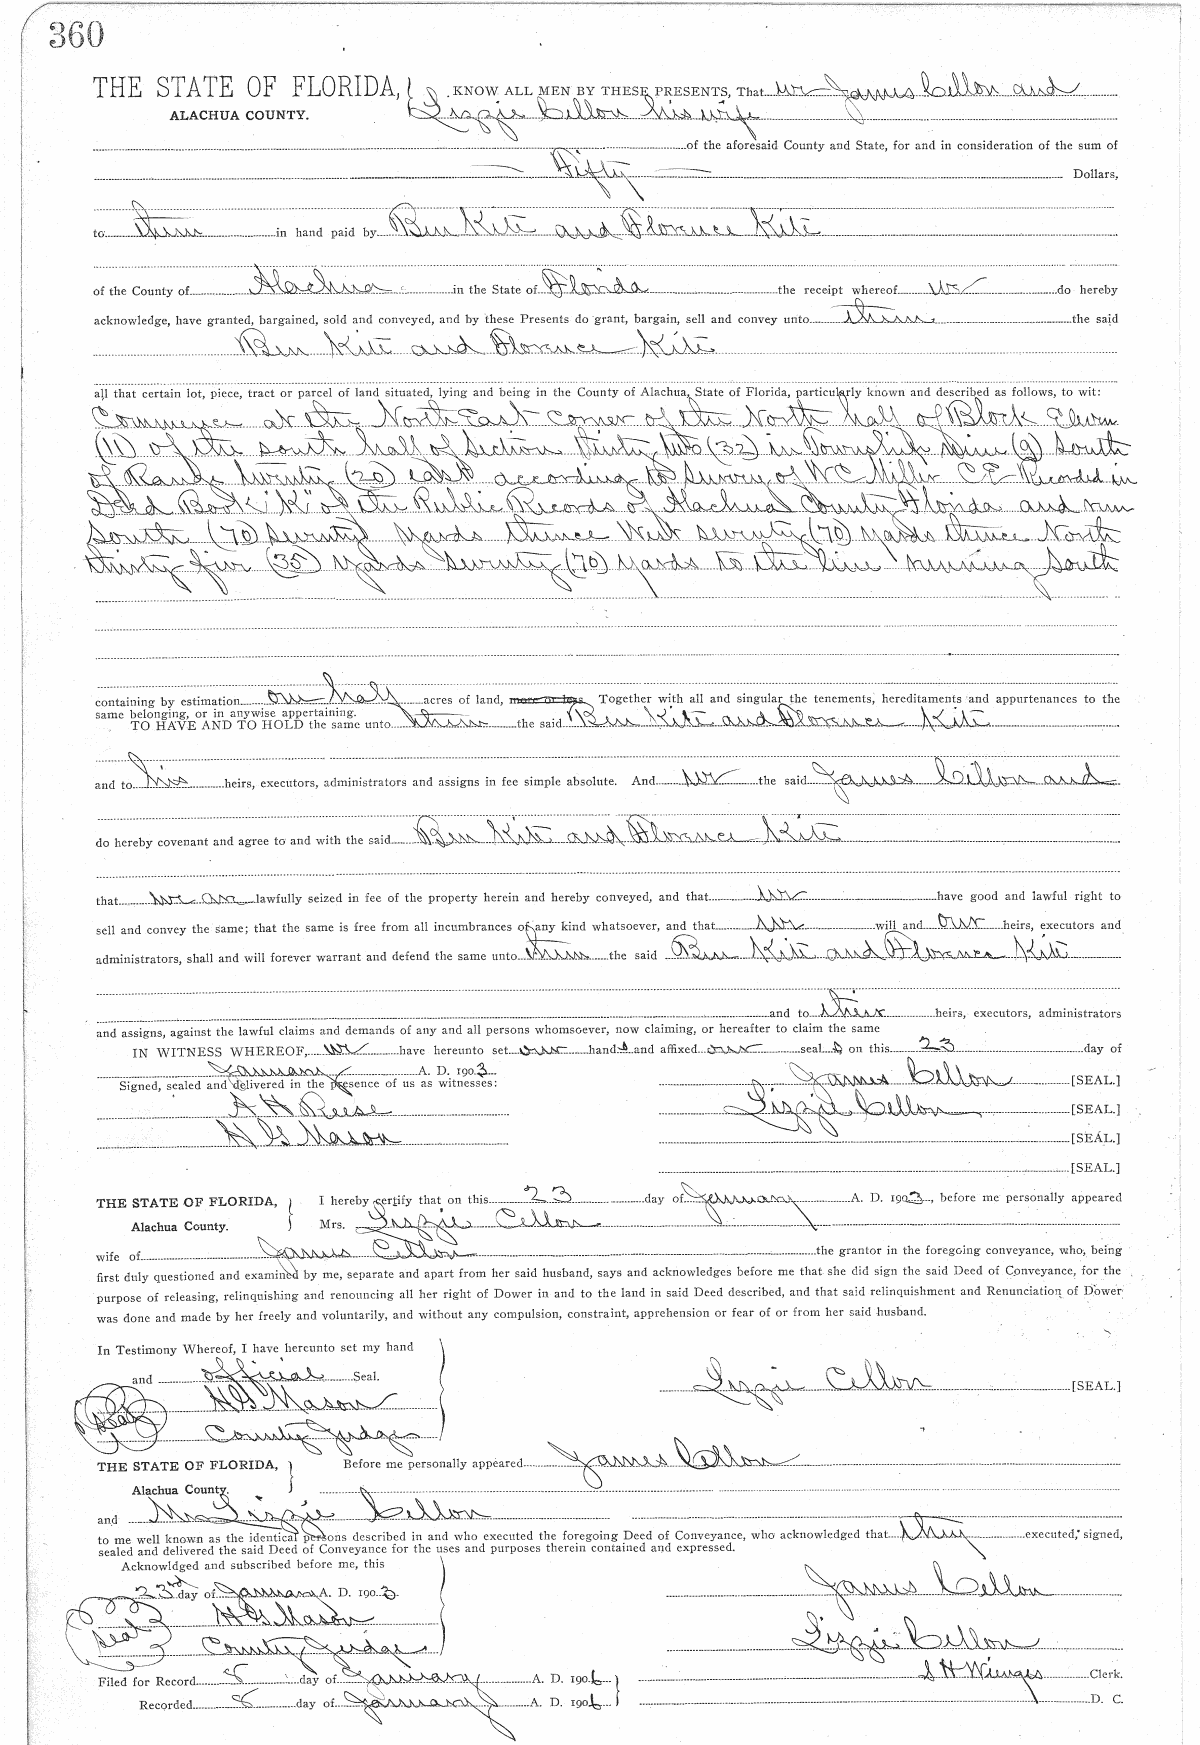 360
THE STATE OF FLORIDA, KNOW ALL MEN BY THESE PRESENTS, That we James Cellon and
ALACHUA COUNTY. Lizzie Cellon his wife
of the aforesaid County and State, for and in consideration of the sum of
Fifty Dollars,
to them in hand paid by Ben Kite and Florence Kite
of the County of Alachua in the State of Florida the receipt whereof we do hereby
acknowledge, have granted, bargained, sold and conveyed, and by these Presents do grant, bargain, sell and convey unto them the said
Ben Kite and Florence Kite
all that certain lot, piece, tract or parcel of land situated, lying and being in the County of Alachua, State of Florida, particularly known and described as follows, to wit:
Commence at the North East corner of the North half of Block Eleven
(11) of the south half of Section thirty two (32) in Township Nine (9) South
of Range twenty (20) east according to Survey of WC Miller C.E. Recorded in
Deed Book "K" of the Public Records of Alachua County Florida and run
South (70) Seventy yards thence West seventy (70) yards thence North
thirty five (35) yards seventy (70) yards to the line running South
containing by estimation one half acres of land, more or less Together with all and singular the tenements, hereditaments and appurtenances to the
same belonging, or in anywise appertaining.
TO HAVE AND TO HOLD the same unto them the said Ben Kite and Florence Kite
and to his heirs, executors, administrators and assigns in fee simple absolute. And we the said James Cellon and
do hereby covenant and agree to and with the said Ben Kite and Florence Kite
that we are lawfully seized in fee of the property herein and hereby conveyed, and that we have good and lawful right to
sell and convey the same; that the same is free from all incumbrances of any kind whatsoever, and that we will and our heirs, executors and
administrators, shall and will forever warrant and defend the same unto them the said Ben Kite and Florence Kite
and to their heirs, executors, administrators
and assigns, against the lawful claims and demands of any and all persons whomsoever, now claiming, or hereafter to claim the same
IN WITNESS WHEREOF, we have hereunto set our hands and affixed our seals on this 23 day of
January A. D. 1903
Signed, sealed and delivered in the presence of us as witnesses: James Cellon [SEAL.]
A H Reese Lizzie Cellon [SEAL.]
H G Mason [SEAL.]
[SEAL.]
THE STATE OF FLORIDA, I hereby certify that on this 23 day of January A. D. 1903, before me personally appeared
Alachua County. Mrs. Lizzie Cellon
wife of James Cellon the grantor in the foregoing conveyance, who, being
first duly questioned and examined by me, separate and apart from her said husband, says and acknowledges before me that she did sign the said Deed of Conveyance, for the
purpose of releasing, relinquishing and renouncing all her right of Dower in and to the land in said Deed described, and that said relinquishment and Renunciation of Dower
was done and made by her freely and voluntarily, and without any compulsion, constraint, apprehension or fear of or from her said husband.
In Testimony Whereof, I have hereunto set my hand
and official Seal. Lizzie Cellon [SEAL.]
Seal H G Mason
County Judge
THE STATE OF FLORIDA, Before me personally appeared James Cellon
Alachua County.
and Mrs Lizzie Cellon
to me well known as the identical persons described in and who executed the foregoing Deed of Conveyance, who acknowledged that they executed, signed,
sealed and delivered the said Deed of Conveyance for the uses and purposes therein contained and expressed.
Acknowldged and subscribed before me, this
23rd day of January A. D. 1903 James Cellon
Seal H G Mason
County Judge Lizzie Cellon
Filed for Record 8 day of January A. D. 1906 S H Wienges Clerk.
Recorded 8 day of January A. D. 1906 D. C.